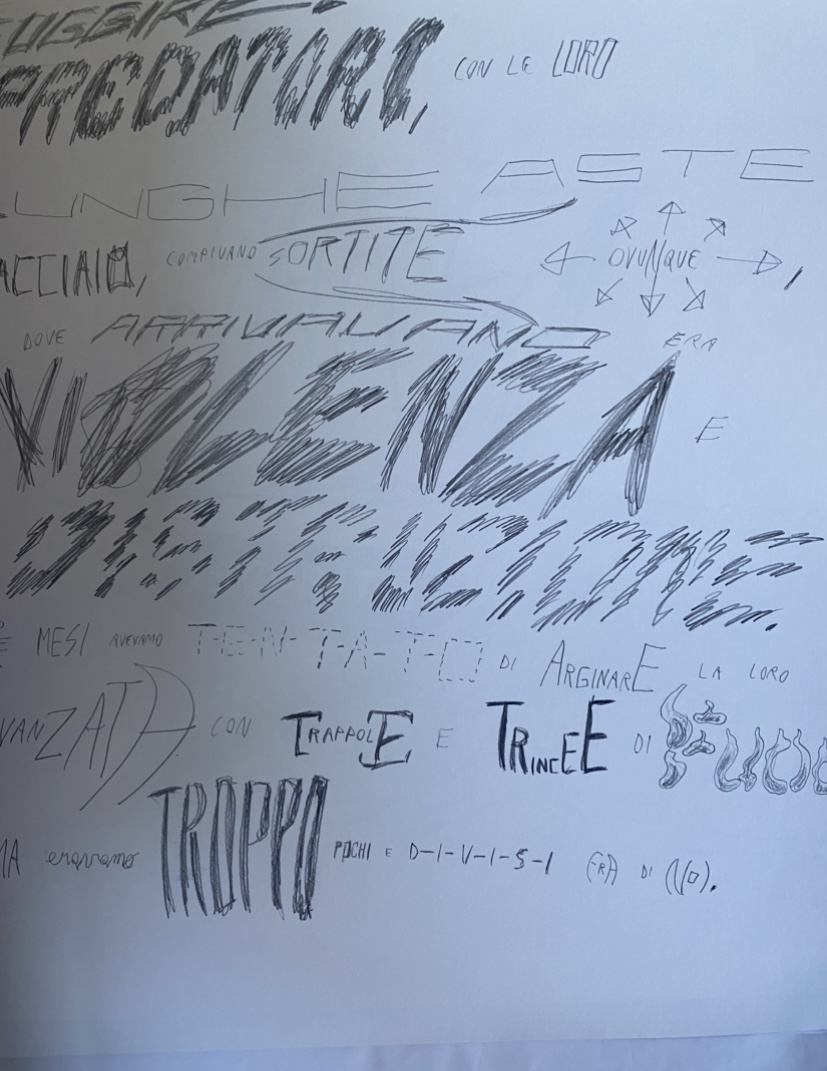 FUGGIRE.
PREDATORI, CON LE LORO
LUNGHE ASTE
ACCIAIO, COMPIVANO SORTITE OVUNQUE,
DOVE ARRIVAVANO ERA
VIOLENZA E
DISTRUZIONE.
MESI AVEVAMO T-E-N-T-A-T-O DI ARGINARE LA LORO
AVANZATA CON TRAPPOLE E TRINCEE DI
MA eravamo TROPPO POCHI E D-I-V-I-S-I FRA DI NOI.